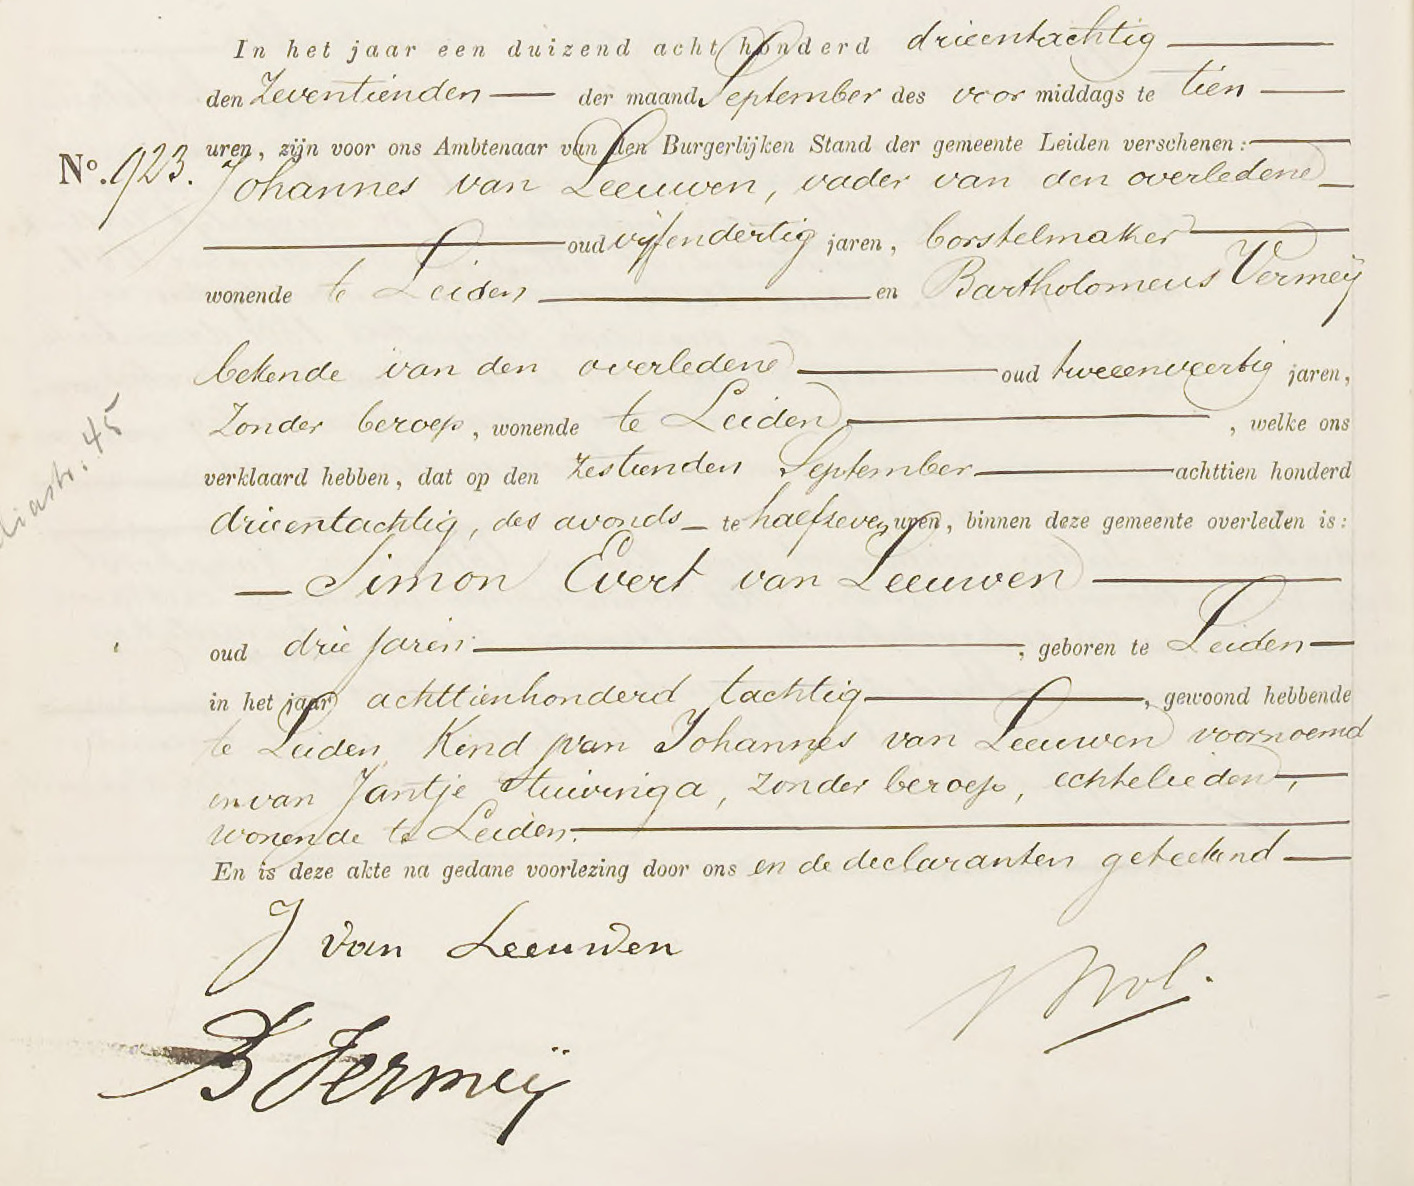 In het jaar een duizend acht honderd drieentachtig
den Zeventienden der maand September des voor middags te tien
uren, zijn voor ons Ambtenaar van den Burgerlijken Stand der gemeente Leiden verschenen:
No. 923. Johannes van Leeuwen, vader van den overledene
oud vijfendertig jaren, borstelmaker
wonende te Leiden en Bartholomeus Vermeij
bekende van den overledene oud tweeenveertig jaren,
Zonder beroep, wonende te Leiden, welke ons
verklaard hebben, dat op den Zestienden September achttien honderd
drieentachtig, des avonds te halfzeven uren, binnen deze gemeente overleden is:
Simon Evert van Leeuwen
oud drie jaren, geboren te Leiden
in het jaar achttienhonderd tachtig, gewoond hebbende
te Leiden, Kind van Johannes van Leeuwen voornoemd
en van Jantje Stuivinga, zonder beroep, echtelieden,
wonende te Leiden.
En is deze akte na gedane voorlezing door ons en de declaranten geteekend
J van Leeuwen
Mol.
B Vermeij
45